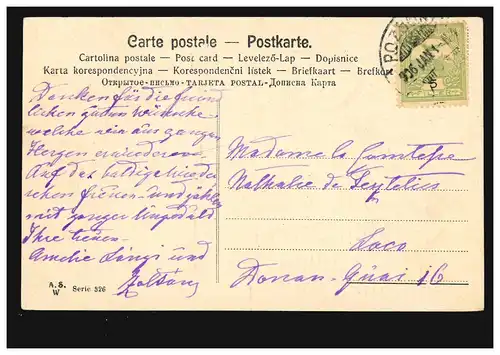 Carte postale — Postkarte.
Cartolina postale — Post card — Levelező-Lap — Dopisnice
Karta korespondencyjna — Korespondenční lístek — Briefkaart — Brefkort
Открытое-письмо - TARJETA POSTAL - Дописна Карта
Danken für die freund
lichen guten Wünsche
welche wir aus ganzem
Herzen erwiedern.
Auf das baldige Wieder
sehen freuen
mit ganzer Ungeduld
Ihre treuen
Amelie und
Zoltán
Madame la Comtesse
Nathalie de
Loco
Donau-Quai 16
POZSONY
906 JAN 1
A.S.
W
Serie 526